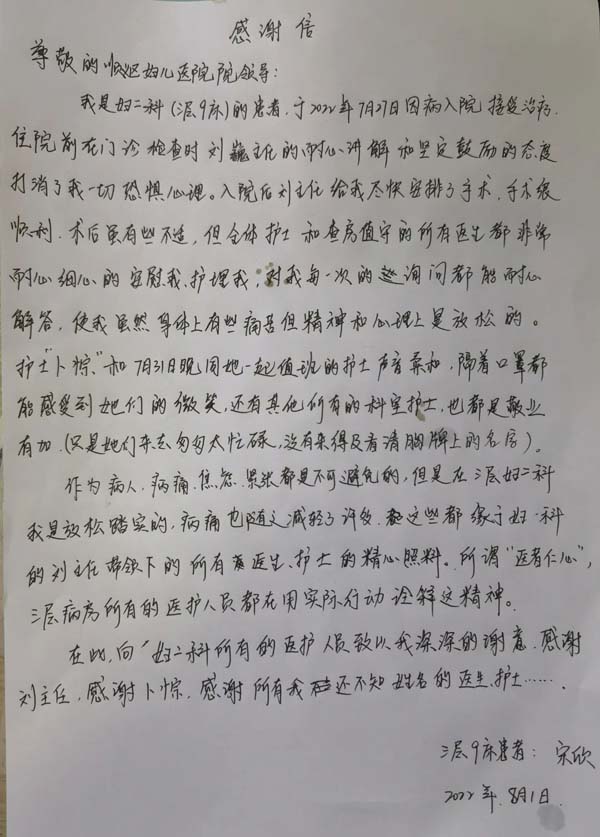 感谢信
尊敬的顺义区妇儿医院院领导：
我是妇二科（三层9床）的患者，于2022年7月27日因病入院接受治疗，
住院前在门诊检查时刘巍主任的耐心讲解和坚定鼓励的态度
打消了我一切恐惧心理。入院后刘主任给我尽快安排了手术，手术很
顺利，术后虽有些不适，但全体护士和查房值守的所有医生都非常
耐心细心的安慰我、护理我，对我每一次的询问都能耐心
解答，使我虽然身体上有些痛苦但精神和心理上是放松的。
护士"卜惊"和7月31日晚同她一起值班的护士声音柔和，隔着口罩都
能感受到她们的微笑，还有其他所有的科室护士，也都是敬业
有加（只是她们来去匆匆太忙碌，没有来得及看清胸牌上的名字）。
作为病人，病痛、焦虑、紧张都是不可避免的，但是在三层妇二科
我是放松踏实的，病痛也随之减轻了许多，这些都缘于妇二科
的刘主任带领下的所有医生、护士的精心照料。所谓"医者仁心"，
三层病房所有的医护人员都在用实际行动诠解这精神。
在此，向妇二科所有的医护人员致以我深深的谢意，感谢
刘主任，感谢卜惊，感谢所有我还不知姓名的医生、护士……
三层9床患者：宋欣
2022年8月1日